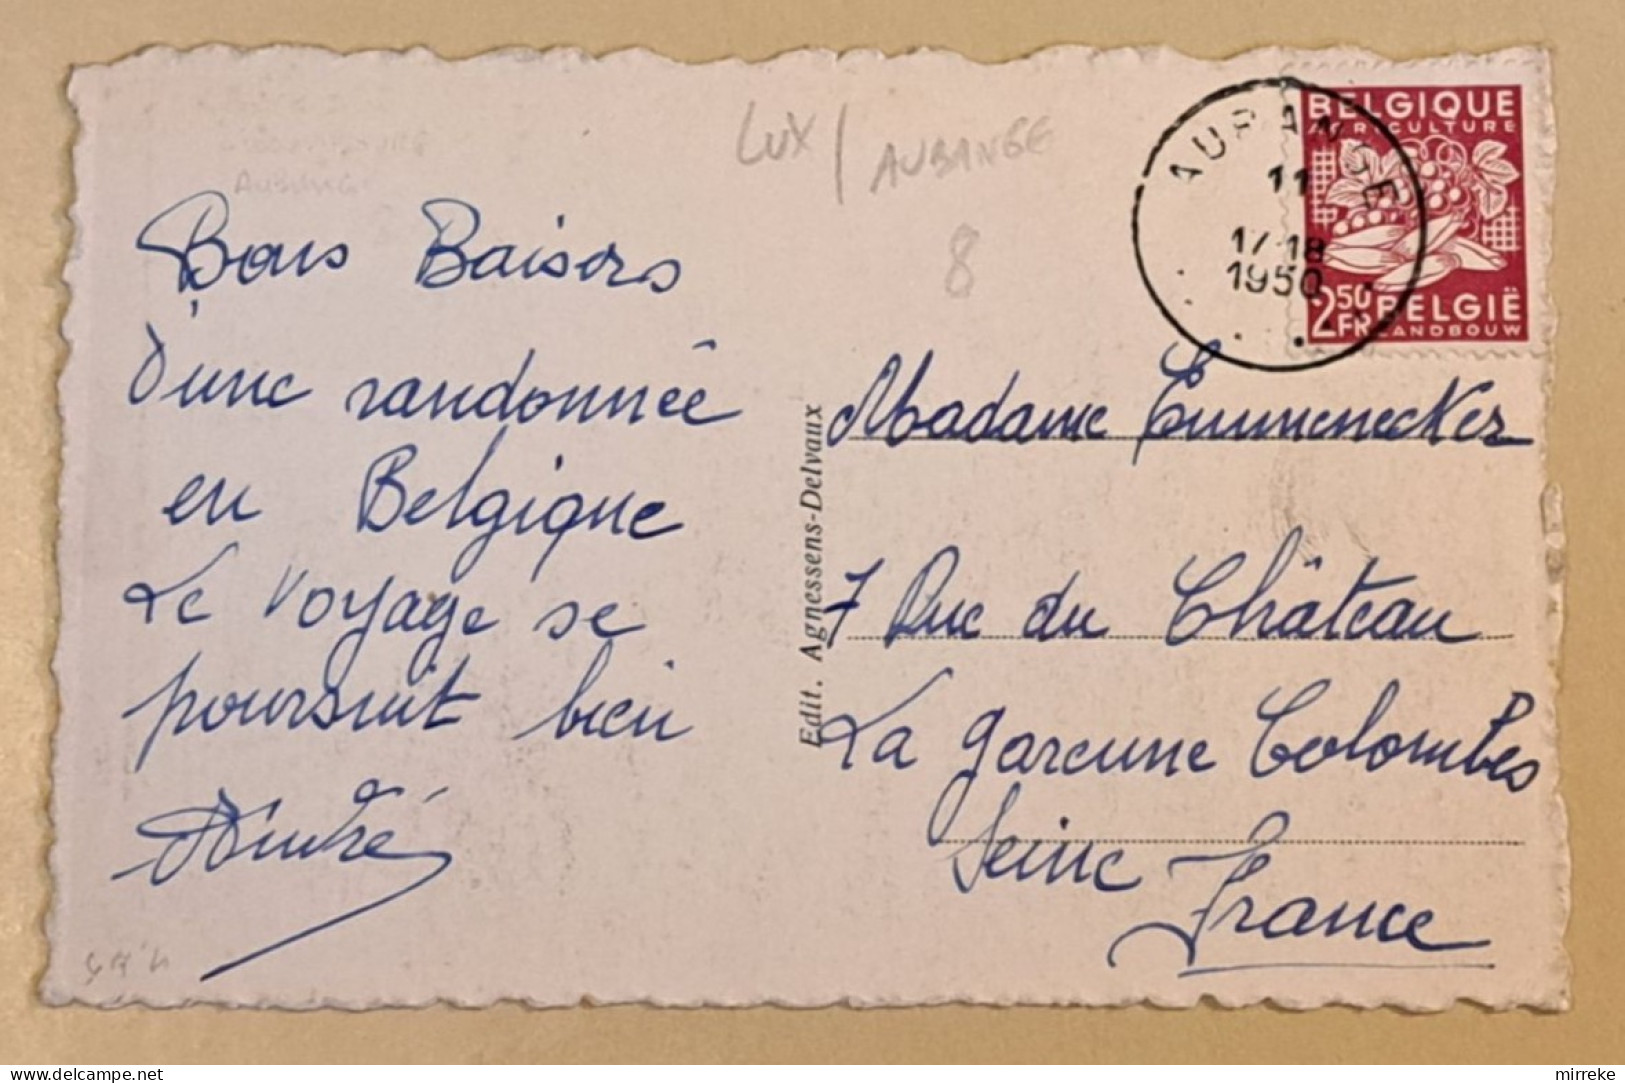 Bons Baisers
d'une randonnée
en Belgique
Le voyage se
poursuit bien
André
LUX / AUBANGE
8
AUBANGE
11
17-18
1950
BELGIQUE
AGRICULTURE
2,50 FR
BELGIË
LANDBOUW
Edit. Agnessens-Delvaux
Madame
7 Rue du Château
La Garenne Colombes
Seine
France
AUBANGE
mirreke